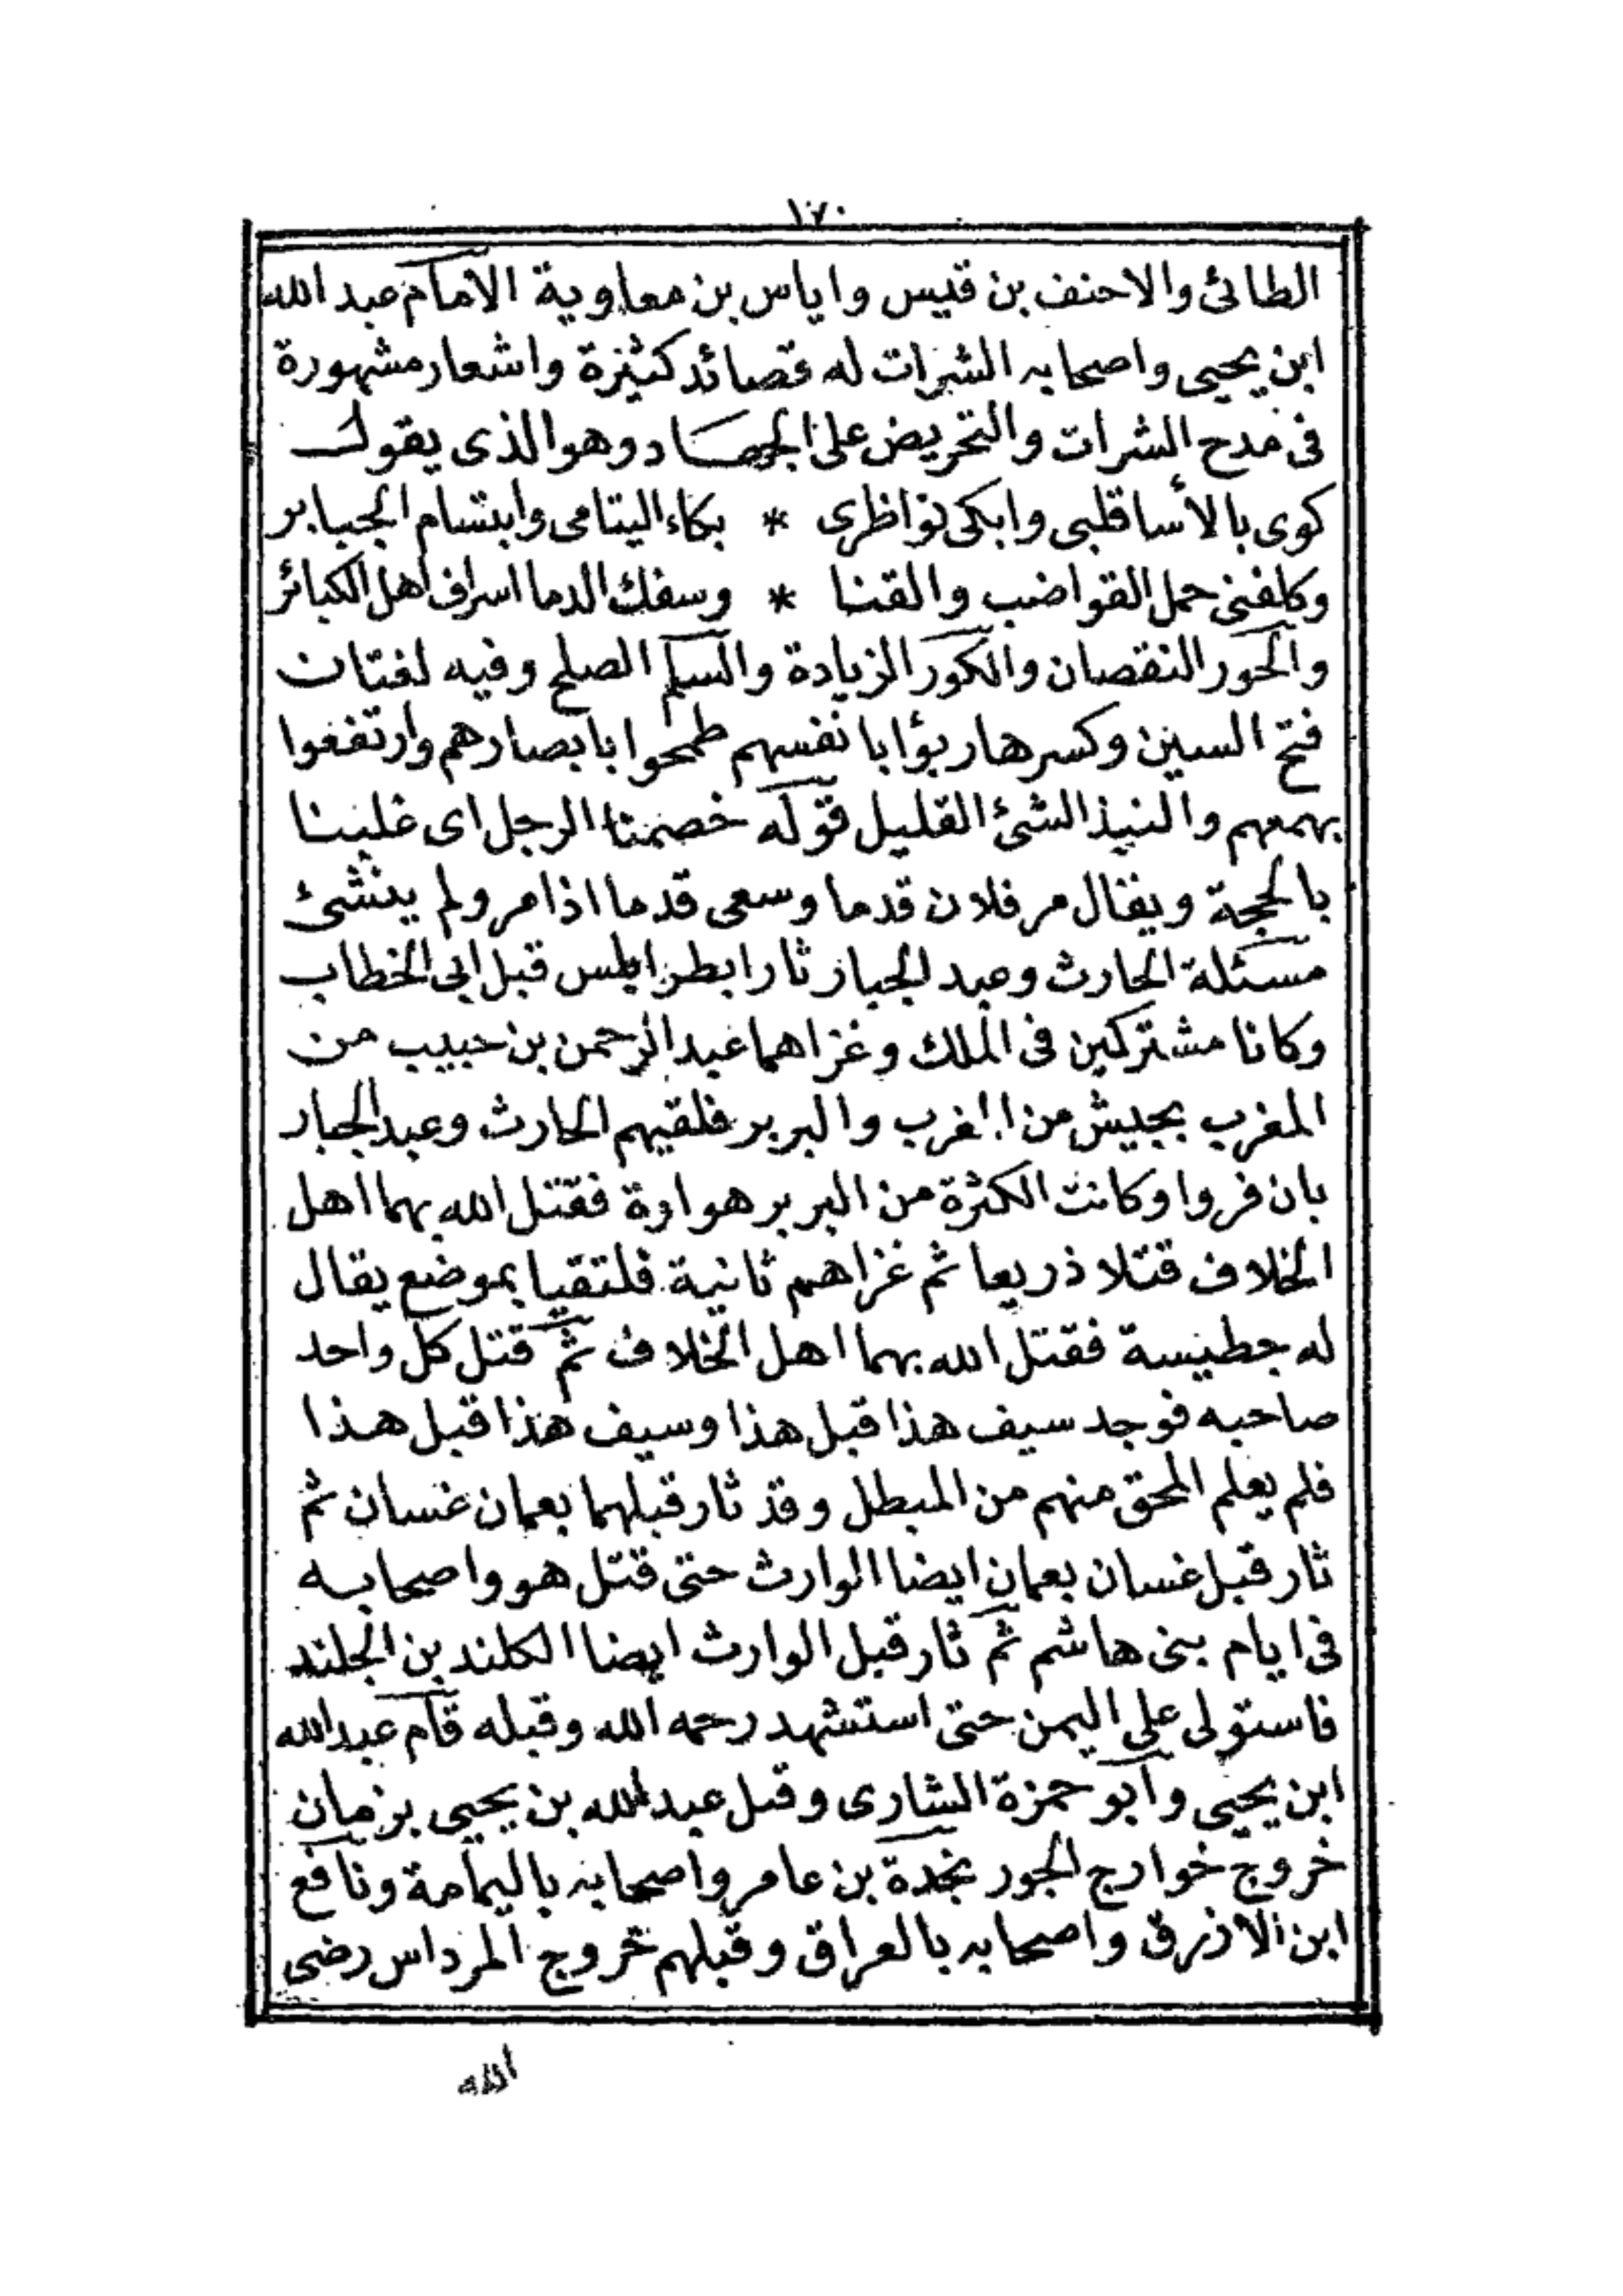 ١٧٠
الطائى والاحنف بن قيس واياس بن معاوية الامام عبد الله
ابن يحيى واصحابه الشرات له قصائد كثيرة واشعار مشهورة
فى مدح الشرات والتحريض على الجهاد وهو الذى يقول
كوى بالأسا قلبى وابكى نواظرى * بكاء اليتامى وابتسام الجبابر
وكلفنى حمل القواضب والقنا * وسفك الدما اسراف اهل الكبائر
والحور النقصان والكور الزيادة والسلم الصلح وفيه لغتان
فتح السين وكسرها ربؤا بانفسهم طمحوا بابصارهم وارتفعوا
بهممهم والنبذ الشئ القليل قوله خصمنا الرجل اى غلبنا
بالحجة ويقال مر فلان قدما وسعى قدما اذا مر ولم ينثنى
مسئلة الحارث وعبد الجبار ثارا بطرابلس قبل ابى الخطاب
وكانا مشتركين فى الملك وغزاهما عبد الرحمن بن حبيب من
المغرب بجيش من الغرب والبربر فلقيهم الحارث وعبد الجبار
بان فروا وكانت الكثرة من البربر هوارة فقتل الله بهما اهل
الخلاف قتلا ذريعا ثم غزاهم ثانية فلتقيا بموضع يقال
له جطيسة فقتل الله بهما اهل الخلاف ثم قتل كل واحد
صاحبه فوجد سيف هذا قبل هذا وسيف هذا قبل هذا
فلم يعلم المحق منهم من المبطل وقد ثار قبلهما بعمان غسان ثم
ثار قبل غسان بعمان ايضا الوارث حتى قتل هو واصحابه
فى ايام بنى هاشم ثم ثار قبل الوارث ايضا الكلند بن الجلند
فاستولى على اليمن حتى استشهد رحمه الله وقبله قام عبد الله
ابن يحيى وابو حمزة الشارى وقبل عبد الله بن يحيى بزمان
خروج خوارج الجور نجدة بن عامر واصحابه باليمامة ونافع
ابن الازرق واصحابه بالعراق وقبلهم خروج المرداس رضى
الله